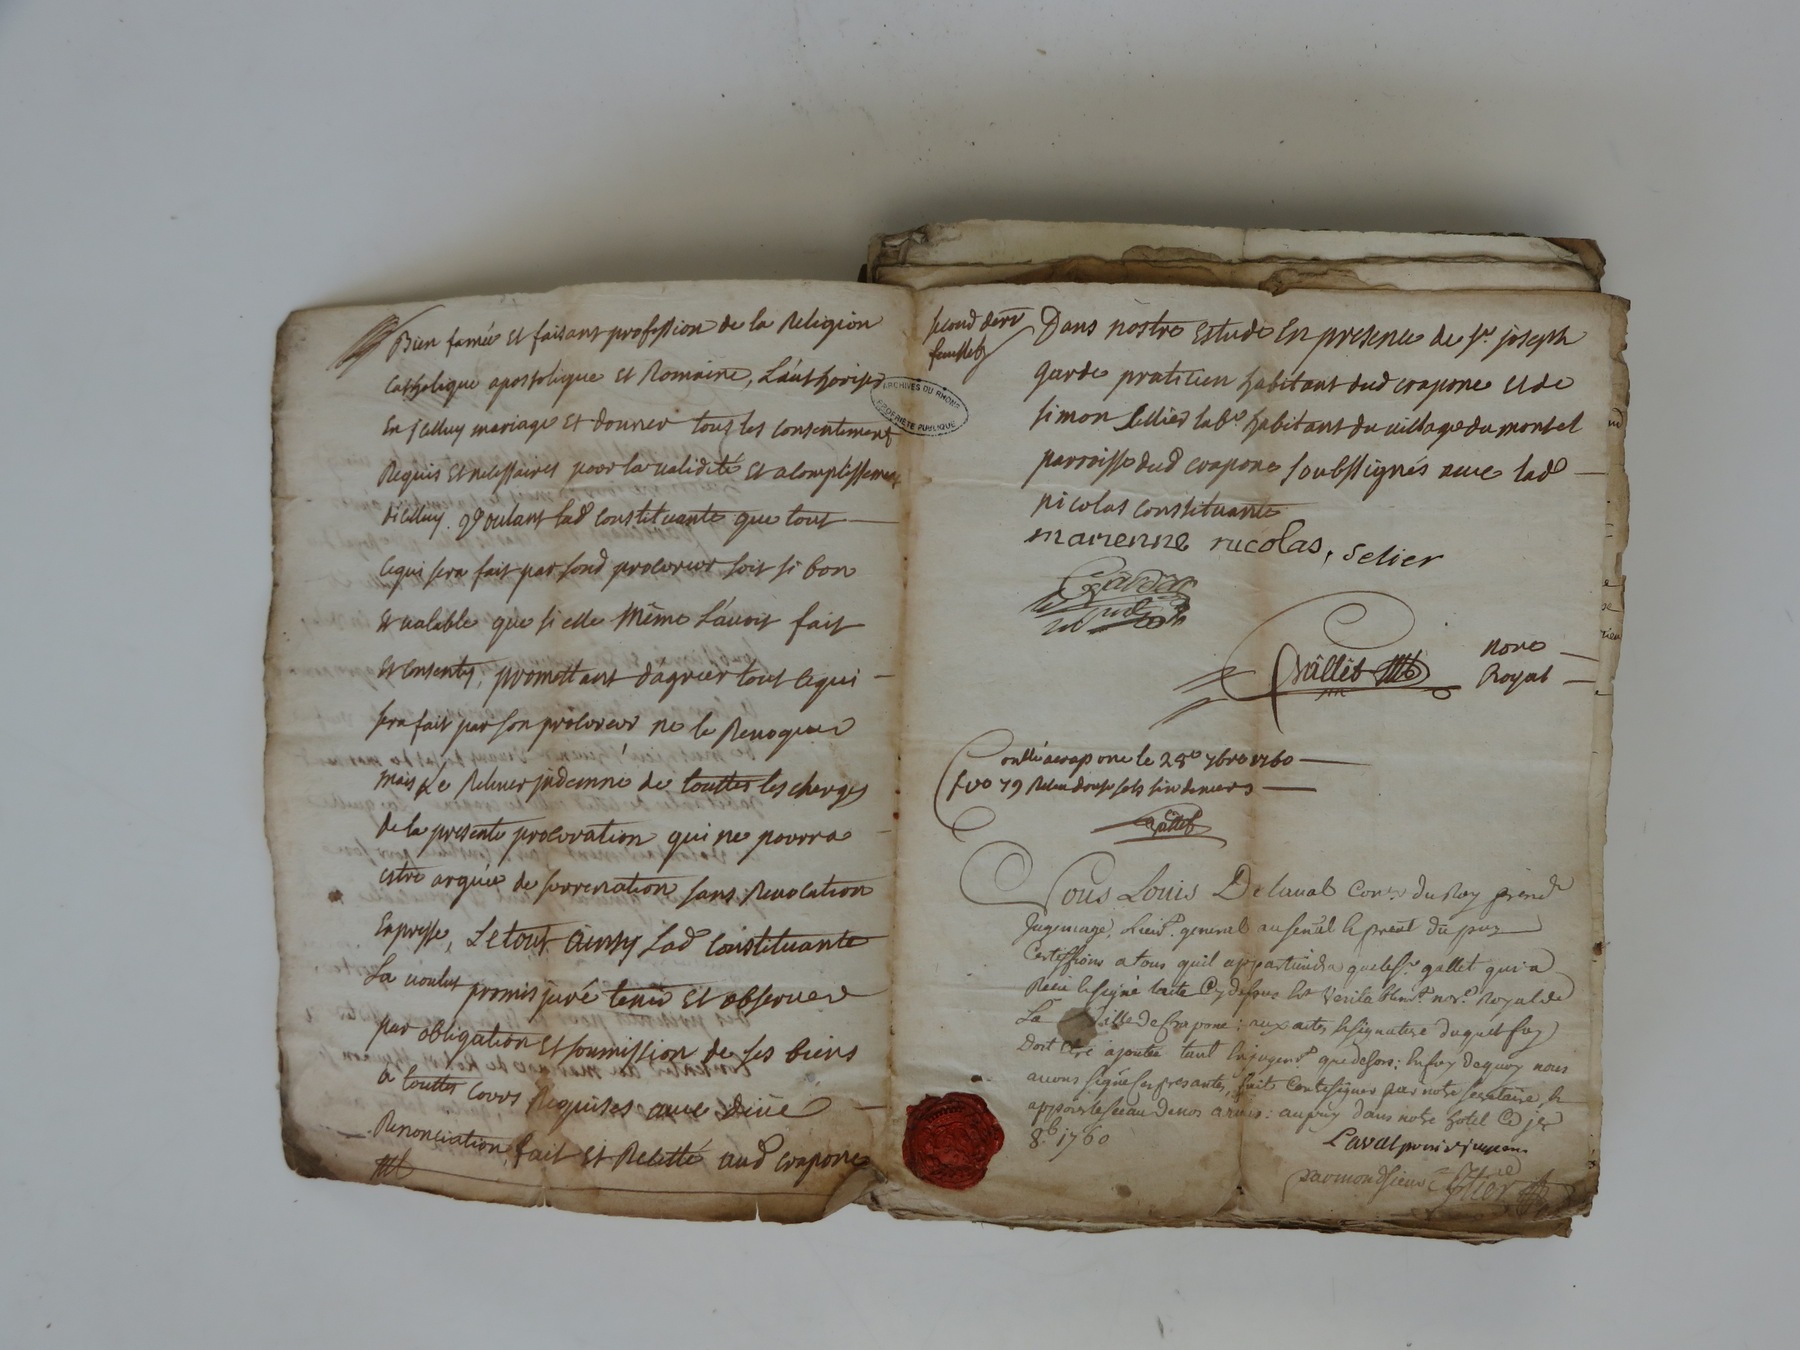 Bien famée et faisant profession de la Religion
Catholique apostolique et Romaine, L'authoriser
En jcelluy mariage et donner tous les consentement
Requis et necessaires pour la validité et acomplissement
dicelluy. Voulant lad constituante que tout
ce qui sera fait par sond procureur soit si bon
et valable que si elle Même L'avoit fait
et consenty, promettant d'agreer tout ce qui
sera fait par son procureur ne le Revoquer
mais Le Relever jndemne de touttes les charges
de la presente procuration qui ne pourra
estre arguée de surrenation sans Revocation
Expresse, Le tout Ainsy Lad Constituante
La voulut promis juré tenir et observer
par obligation et soumission de ses biens
a touttes Cours Requises avec düe
Renonciation fait et Recitté aud craponne
second dern
feuillet
ARCHIVES DU RHÔNE
PROPRIÉTÉ PUBLIQUE
Dans nostre Estude En presence de Sr. joseph
garde praticien habitant dud crapone et de
simon Sellier labr habitant du village du montel
parroisse dud crapone soubssignés avec lad
nicolas constituante
marienne nicolas, selier
Garde
Gallet
Nore
Royal
Contlé a crapone le 28e 7bre 1760
fvo 79 Receu douse sols six deniers
Gallet
Nous Louis Delaval Conr. du Roy presid
Jugemage, Lieut. general au senal & preal du puy
Certiffions a tous quil appartiendra que le Sr. gallet qui a
Recu & signe lacte Cy dessus Est Veritablemt. nore. Royal de
La Ville de Crapone: aux actes & signature duquel foy
Doit etre ajoutée tant En jugemt. que dehors: En foy de quoy nous
avons signé ses presantes, fait Contresigner par notre secretaire, &
apposer le sceau de nos armes: au puy dans notre hotel Ce jer
8b. 1760
Laval president jugemage
par mondsieur